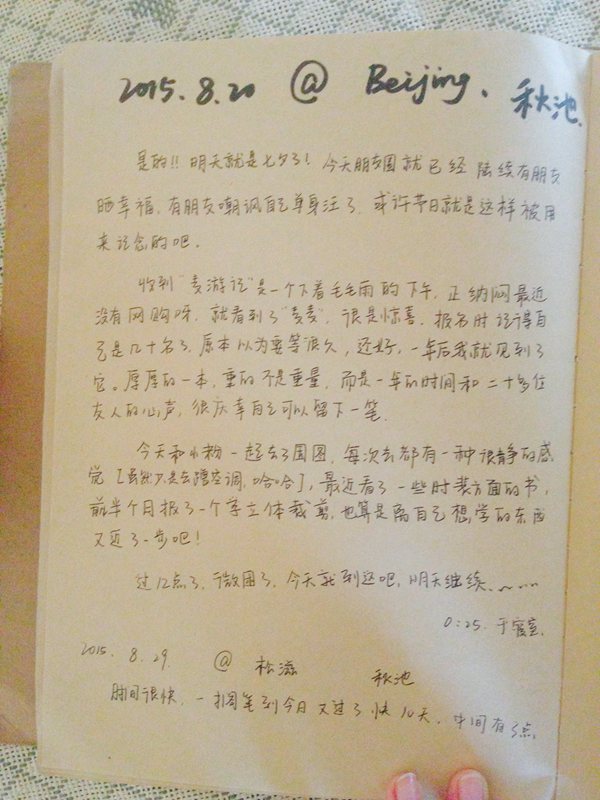 2015.8.20 @ Beijing. 秋池.
是的!! 明天就是七夕了! 今天朋友圈就已经陆续有朋友
晒幸福, 有朋友嘲讽自己单身汪了, 或许节日就是这样被用
来记念的吧。
收到“麦游记”是一个下着毛毛雨的下午, 正纳闷最近
没有网购呀, 就看到了“麦麦”, 很是惊喜, 报名时记得自
己是几十名了, 原本以为要等很久, 还好, 一年后我就见到了
它。厚厚的一本, 重的不是重量, 而是一年的时间和二十多位
友人的心声, 很庆幸自己可以留下一笔.
今天和小粉一起去了国图, 每次去都有一种很静的感
觉 [虽然只是去蹭空调, 哈哈], 最近看了一些时装方面的书,
前半个月报了一个学立体裁剪, 也算是离自己想学的东西
又近了一步吧!
过12点了, 微困了, 今天就到这吧, 明天继续. ~ ~~
0:25. 于寝室.
2015. 8.29. @ 松滋 秋池
时间很快, 一搁笔到今日又过了快10天, 中间有点